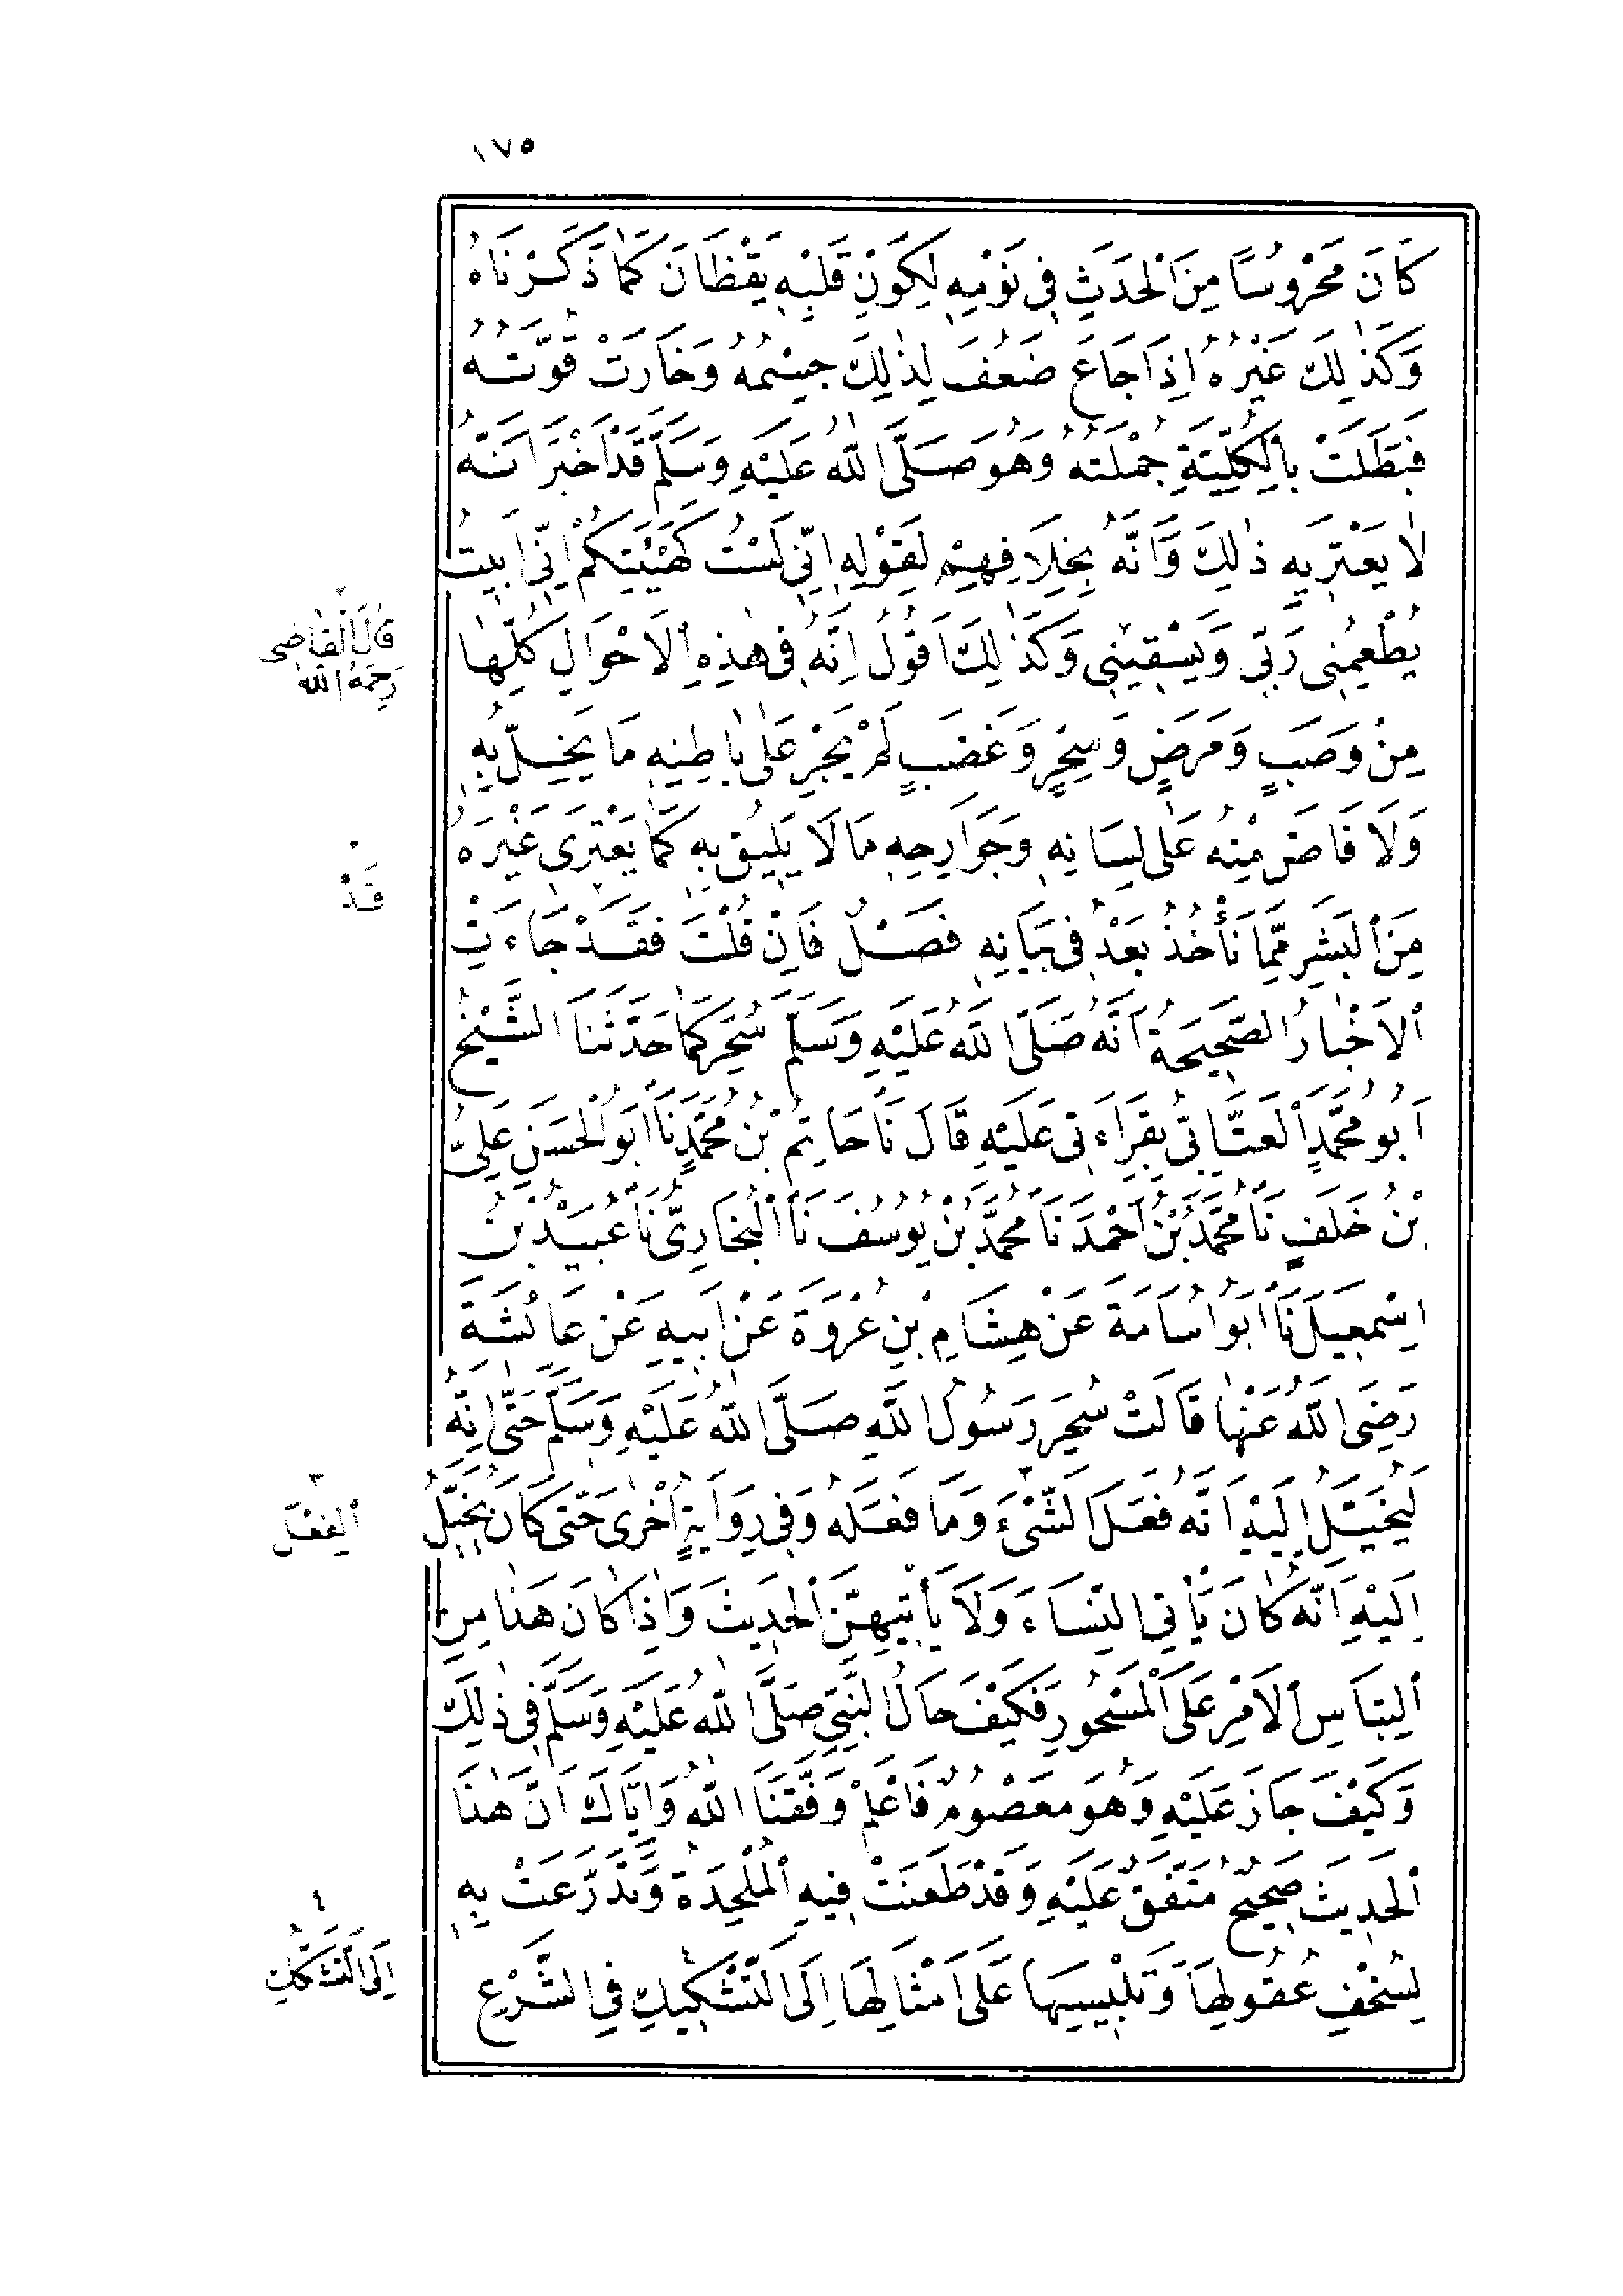 ١٧٥
كَانَ مَحْرُوسًا مِنَ الْحَدَثِ فِي نَوْمِهِ لِكَوْنِ قَلْبِهِ يَقْظَانَ كَمَا ذَكَرْنَاهُ
وَكَذٰلِكَ غَيْرُهُ اِذَا جَاعَ ضَعُفَ لِذٰلِكَ جِسْمُهُ وَخَارَتْ قُوَّتُهُ
فَبَطَلَتْ بِالْكُلِّيَّةِ جُمْلَتُهُ وَهُوَ صَلَّى اللّٰهُ عَلَيْهِ وَسَلَّمَ قَدْ اَخْبَرَ اَنَّهُ
لَا يَعْتَرِيهِ ذٰلِكَ وَاَنَّهُ بِخِلَافِهِمْ لِقَوْلِهِ اِنِّي لَسْتُ كَهَيْئَتِكُمْ اِنِّي اَبِيتُ
يُطْعِمُنِي رَبِّي وَيَسْقِينِي ٢ وَكَذٰلِكَ اَقُولُ اِنَّهُ فِي هٰذِهِ الْاَحْوَالِ كُلِّهَا
٢ قَالَ الْقَاضِي
رَحِمَهُ اللّٰهُ
مِنْ وَصَبٍ وَمَرَضٍ وَسِحْرٍ وَغَضَبٍ لَمْ يَجْرِ عَلٰى بَاطِنِهِ مَا يُخِلُّ بِهِ
وَلَا فَاضَ مِنْهُ عَلٰى لِسَانِهِ وَجَوَارِحِهِ مَا لَا يَلِيقُ بِهِ كَمَا يَعْتَرِي غَيْرَهُ
قَدْ
مِنَ الْبَشَرِ مِمَّا نَأْخُذُ بَعْدُ فِي بَيَانِهِ فَصْلٌ فَاِنْ قُلْتَ فَقَدْ جَاءَتِ
الْاَخْبَارُ الصَّحِيحَةُ اَنَّهُ صَلَّى اللّٰهُ عَلَيْهِ وَسَلَّمَ سُحِرَ كَمَا حَدَّثَنَا الشَّيْخُ
اَبُو مُحَمَّدٍ الْعَتَّابِيُّ بِقِرَاءَتِي عَلَيْهِ قَالَ نَا حَاتِمُ بْنُ مُحَمَّدٍ نَا اَبُو الْحَسَنِ عَلِيُّ
بْنُ خَلَفٍ نَا مُحَمَّدُ بْنُ اَحْمَدَ نَا مُحَمَّدُ بْنُ يُوسُفَ نَا الْبُخَارِيُّ نَا عُبَيْدُ بْنُ
اِسْمٰعِيلَ نَا اَبُو اُسَامَةَ عَنْ هِشَامِ بْنِ عُرْوَةَ عَنْ اَبِيهِ عَنْ عَائِشَةَ
رَضِيَ اللّٰهُ عَنْهَا قَالَتْ سُحِرَ رَسُولُ اللّٰهِ صَلَّى اللّٰهُ عَلَيْهِ وَسَلَّمَ حَتّٰى اِنَّهُ
لَيُخَيَّلُ اِلَيْهِ اَنَّهُ فَعَلَ الشَّيْءَ ٣ وَمَا فَعَلَهُ وَفِي رِوَايَةٍ اُخْرٰى حَتّٰى كَانَ يُخَيَّلُ
٣ الْفِعْلَ
اِلَيْهِ اَنَّهُ كَانَ يَأْتِي النِّسَاءَ وَلَا يَأْتِيهِنَّ الْحَدِيثَ وَاِذَا كَانَ هٰذَا مِنِ
الْتِبَاسِ الْاَمْرِ عَلَى الْمَسْحُورِ فَكَيْفَ حَالُ النَّبِيِّ صَلَّى اللّٰهُ عَلَيْهِ وَسَلَّمَ فِي ذٰلِكَ
وَكَيْفَ جَازَ عَلَيْهِ وَهُوَ مَعْصُومٌ فَاعْلَمْ وَفَّقَنَا اللّٰهُ وَاِيَّاكَ اَنَّ هٰذَا
الْحَدِيثَ صَحِيحٌ مُتَّفَقٌ عَلَيْهِ وَقَدْ طَعَنَتْ فِيهِ الْمُلْحِدَةُ وَتَدَرَّعَتْ بِهِ
لِسُخْفِ عُقُولِهَا وَتَلْبِيسِهَا عَلٰى اَمْثَالِهَا اِلَى التَّشْكِيكِ ٤ فِي الشَّرْعِ
٤ اِلَى التَّشَكُّكِ